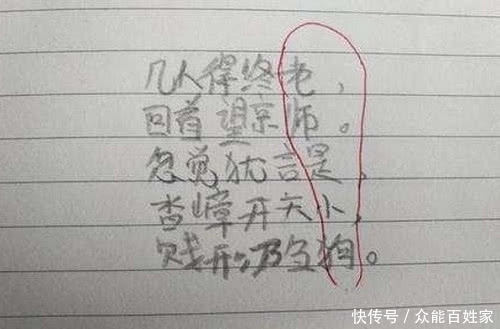 几人得终老，
回首望京师。
忽觉犹言是，
杳嶂开天小，
贱形乃刍狗。
快传号／众能百姓家